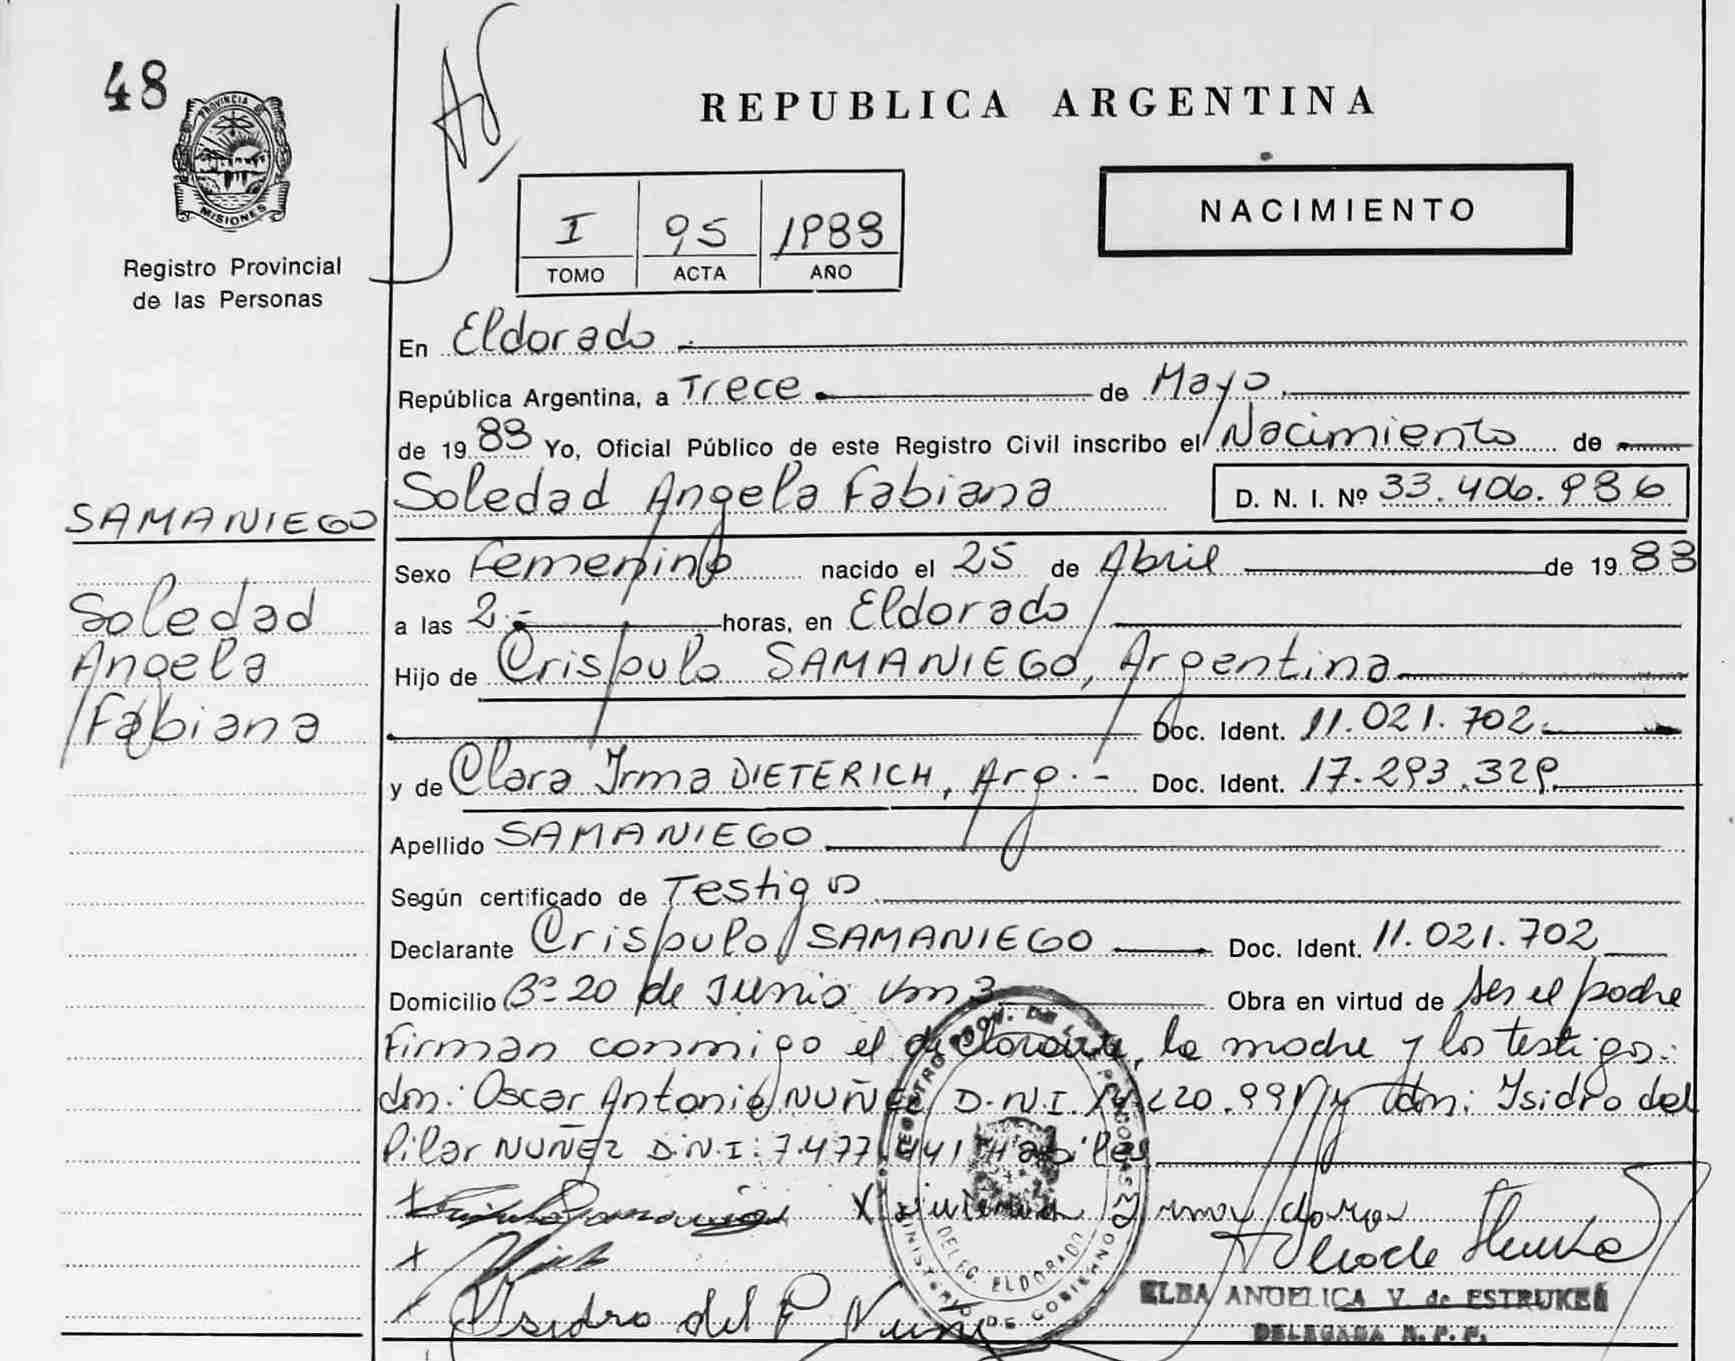 48
PROVINCIA DE
MISIONES
Registro Provincial
de las Personas
REPUBLICA ARGENTINA
NACIMIENTO
I 95 1988
TOMO ACTA AÑO
En Eldorado
República Argentina, a Trece de Mayo
de 1988 Yo, Oficial Público de este Registro Civil inscribo el Nacimiento de
Soledad Angela Fabiana D. N. I. Nº 33.406.986
SAMANIEGO
Soledad
Angela
Fabiana
Sexo Femenino nacido el 25 de Abril de 1988
a las 2.- horas, en Eldorado
Hijo de Crispulo SAMANIEGO, Argentina
Doc. Ident. 11.021.702.
y de Clara Irma DIETERICH, Arg.- Doc. Ident. 17.293.329.
Apellido SAMANIEGO
Según certificado de Testigo
Declarante Crispulo SAMANIEGO Doc. Ident. 11.021.702
Domicilio Bº 20 de Junio km 3 Obra en virtud de ser el padre
Firman conmigo el declarante, la madre y los testigos:
dn: Oscar Antonio NUÑEZ D.N.I. y dn: Isidro del
Pilar NUÑEZ D.N.I: 7.477.441 Habiles
X
X Irma Clara
X
X Isidro del P Nuñe
DELEG. ELDORADO
MINISTERIO DE GOBIERNO
ELBA ANGELICA V. de ESTRUKEL
DELEGADA R. P. P.